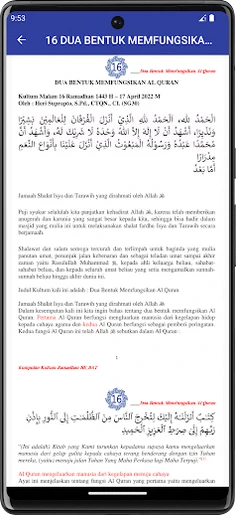 9:53
16 DUA BENTUK MEMFUNGSIKA...
16
Dua Bentuk Memfungsikan Al Quran
DUA BENTUK MEMFUNGSIKAN AL QURAN
Kultum Malam 16 Ramadhan 1443 H – 17 April 2022 M
Oleh : Heri Suprapto, S.Pd., CTQN., CI. (SG30)
الْحَمْدُ لِلَّهِ، الْحَمْدُ لِلَّهِ الَّذِيْ أَنْزَلَ الْفُرْقَانَ لِلْعَالَمِيْنَ بَشِيْرًا
وَنَذِيْرًا، أَشْهَدُ أَنْ لَا إِلَهَ إِلَّا اللهُ وَحْدَهُ لَا شَرِيْكَ لَهُ، وَأَشْهَدُ أَنَّ
مُحَمَّدًا عَبْدُهُ وَرَسُوْلُهُ الْمَبْعُوْثُ الَّذِيْ أَنْزَلَ عَلَيْنَا بِأَنْوَاعِ النِّعَمِ
مِدْرَارًا
أَمَّا بَعْدُ
Jamaah Shalat Isya dan Tarawih yang dirahmati oleh Allah
Puji syukur selalulah kita panjatkan kehadirat Allah ﷻ, karena telah memberikan
anugerah dan karunia yang sangat besar kepada kita, sehingga bisa hadir dalam
masjid yang mulia ini untuk melaksanakan shalat fardhu Isya dan Tarawih secara
berjamaah.
Shalawat dan salam semoga tercurah dan terlimpah untuk baginda yang mulia
panutan umat, penunjuk jalan kebenaran dan sebagai teladan umat sampai akhir
zaman yaitu Rasulullah Muhammad ﷺ, kepada ahli keluarga beliau, sahabat-
sahabat beliau, dan kepada seluruh umat beliau yang setia mengamalkan sunnah-
sunnah beliau hingga akhir dunia ini.
Judul Kultum kali ini adalah : Dua Bentuk Memfungsikan Al Quran
Jamaah Shalat Isya dan Tarawih yang dirahmati oleh Allah
Dalam kesempatan kali ini kita ingin bahas tentang dua bentuk memfungsikan Al
Quran. Pertama Al Quran berfungsi mengeluarkan manusia dari kegelapan hidup
kepada cahaya agama dan kedua Al Quran berfungsi sebagai pemberi peringatan.
Kedua fungsi Al Quran ini telah Allah ﷻ sebutkan dalam Al Quran :
1
Kumpulan Kultum Ramadhan HC_BA7
16
Dua Bentuk Memfungsikan Al Quran
كِتٰبٌ اَنْزَلْنٰهُ اِلَيْكَ لِتُخْرِجَ النَّاسَ مِنَ الظُّلُمٰتِ اِلَى النُّوْرِ بِاِذْنِ
رَبِّهِمْ اِلٰى صِرَاطِ الْعَزِيْزِ الْحَمِيْدِ
"(Ini adalah) Kitab yang Kami turunkan kepadamu supaya kamu mengeluarkan
manusia dari gelap gulita kepada cahaya terang benderang dengan izin Tuhan
mereka, (yaitu) menuju jalan Tuhan Yang Maha Perkasa lagi Maha Terpuji."
Al Quran mengeluarkan manusia dari kegelapan menuju cahaya
Ayat ini menjelaskan tentang fungsi Al Quran yang pertama yaitu mengeluarkan